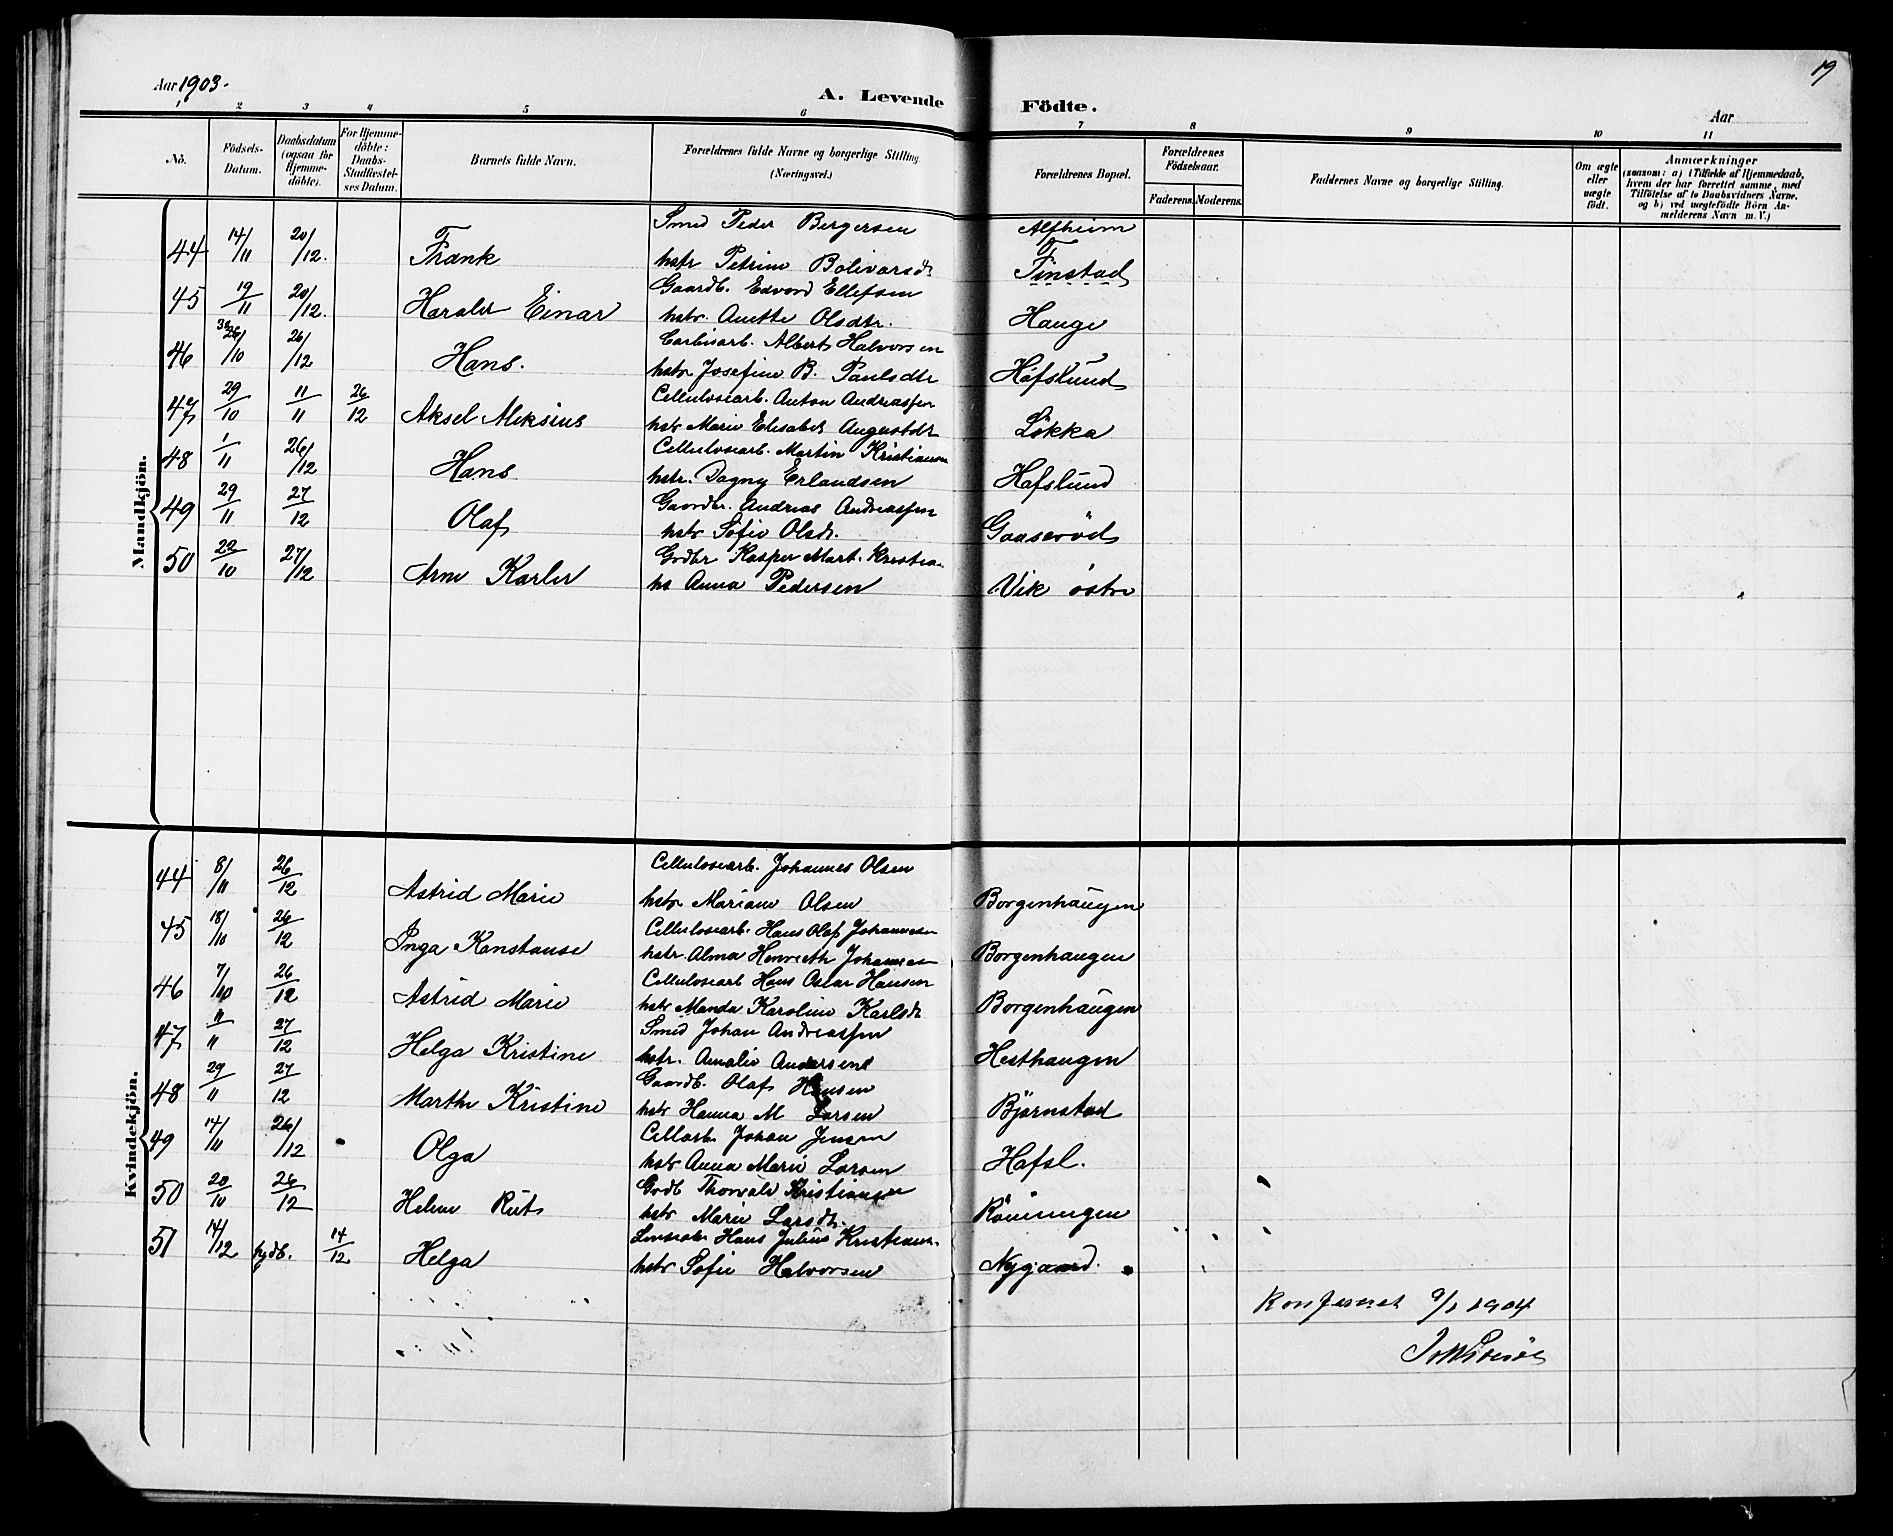 Aar 1903.
A. Levende Födte.
19
Aar
1 2 3 4 5 6 7 8 9 10 11
No.
Födsels-Datum.
Daabsdatum (ogsaa for Hjemme-döbte).
For Hjemme-döbte: Daabs-Stadfæstel-ses Datum.
Barnets fulde Navn.
Forældrenes fulde Navne og borgerlige Stilling.
(Næringsvei.)
Forældrenes Bopæl.
Forældrenes Födselsaar.
Faderens. Moderens.
Faddernes Navne og borgerlige Stilling.
Om ægte eller uægte födt.
Anmærkninger
(saasom: a) i Tilfælde af Hjemmedaab,
hvem der har forrettet samme, med
Tilföielse af to Daabsvidners Navne,
og b) ved uægtefödte Börn An-
melderens Navn m. V.)
Mandkjön.
Smed Peder Bergersen Alfheim
44 14/11 20/12. Frank hstr Petrine Bolivarsdr Finstad
Gaardb. Edvard Ellefsen
45 19/11 20/12. Harald Einar hstr Anette Olsdtr. Hauge
Carbidarb. Albert Halvorsen
46 26/10 26/12 Hans. hstr Josefine B. Paulsdtr Hafslund
Cellulosearb. Anton Andreassen
47 29/10 11/11 26/12 Aksel Aleksius hstr Marie Elisabet Augustdtr Løkka
Cellulosearb. Martin Kristiansen
48 1/11 26/12 Hans hstr. Dagny Erlandsen Hafslund
Gaardbr. Andreas Andreassen
49 29/11 27/12 Olaf hstr Sofie Olsdr. Gaaserød
Grdbr Kasper Mart. Kristian
50 22/10 27/12 Arne Karler hs Anna Pedersen Vik östre
Kvindekjön.
Cellulosearb. Johannes Olsen
44 8/11 26/12 Astrid Marie hstr Mariane Olsen Borgenhaugen
Cellulosearb. Hans Olaf Johannesen
45 18/10 26/12 Inga Konstanse hstr. Alma Henriette Johansen Borgenhaugen
Cellulosearb Hans Oskar Hansen
46 7/10 26/12 Astrid Marie hstr Manda Karoline Karlsdr Borgenhaugen
Smed Johan Andreassen
47 11/11 27/12 Helga Kristine hstr. Amalie Andersen Hesthaugen
Gaardb. Olaf Hansen
48 29/11 27/12 Marthe Kristine hstr Hanna M Larsen Bjørnstad
Cellarb Johan Jensen
49 14/11 26/12 Olga hstr Anna Marie Larsen Hafsl.
Grdb Thorvald Kristiansen
50 20/10 26/12 Helene Rut hstr Marie Larsdr. Rönningen
Hans Julius Kristians.
51 14/12 hjdb. 14/12 Helga hstr Sofie Halvorsen Nygaard.
Konfereret 9/1 1904